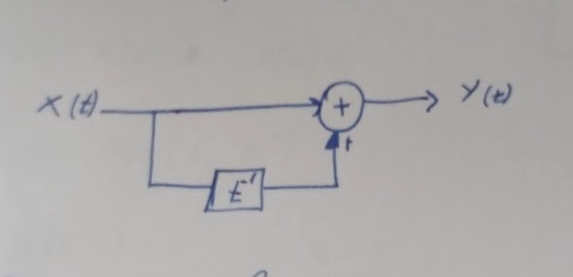 X(t)
+
Y(t)
+